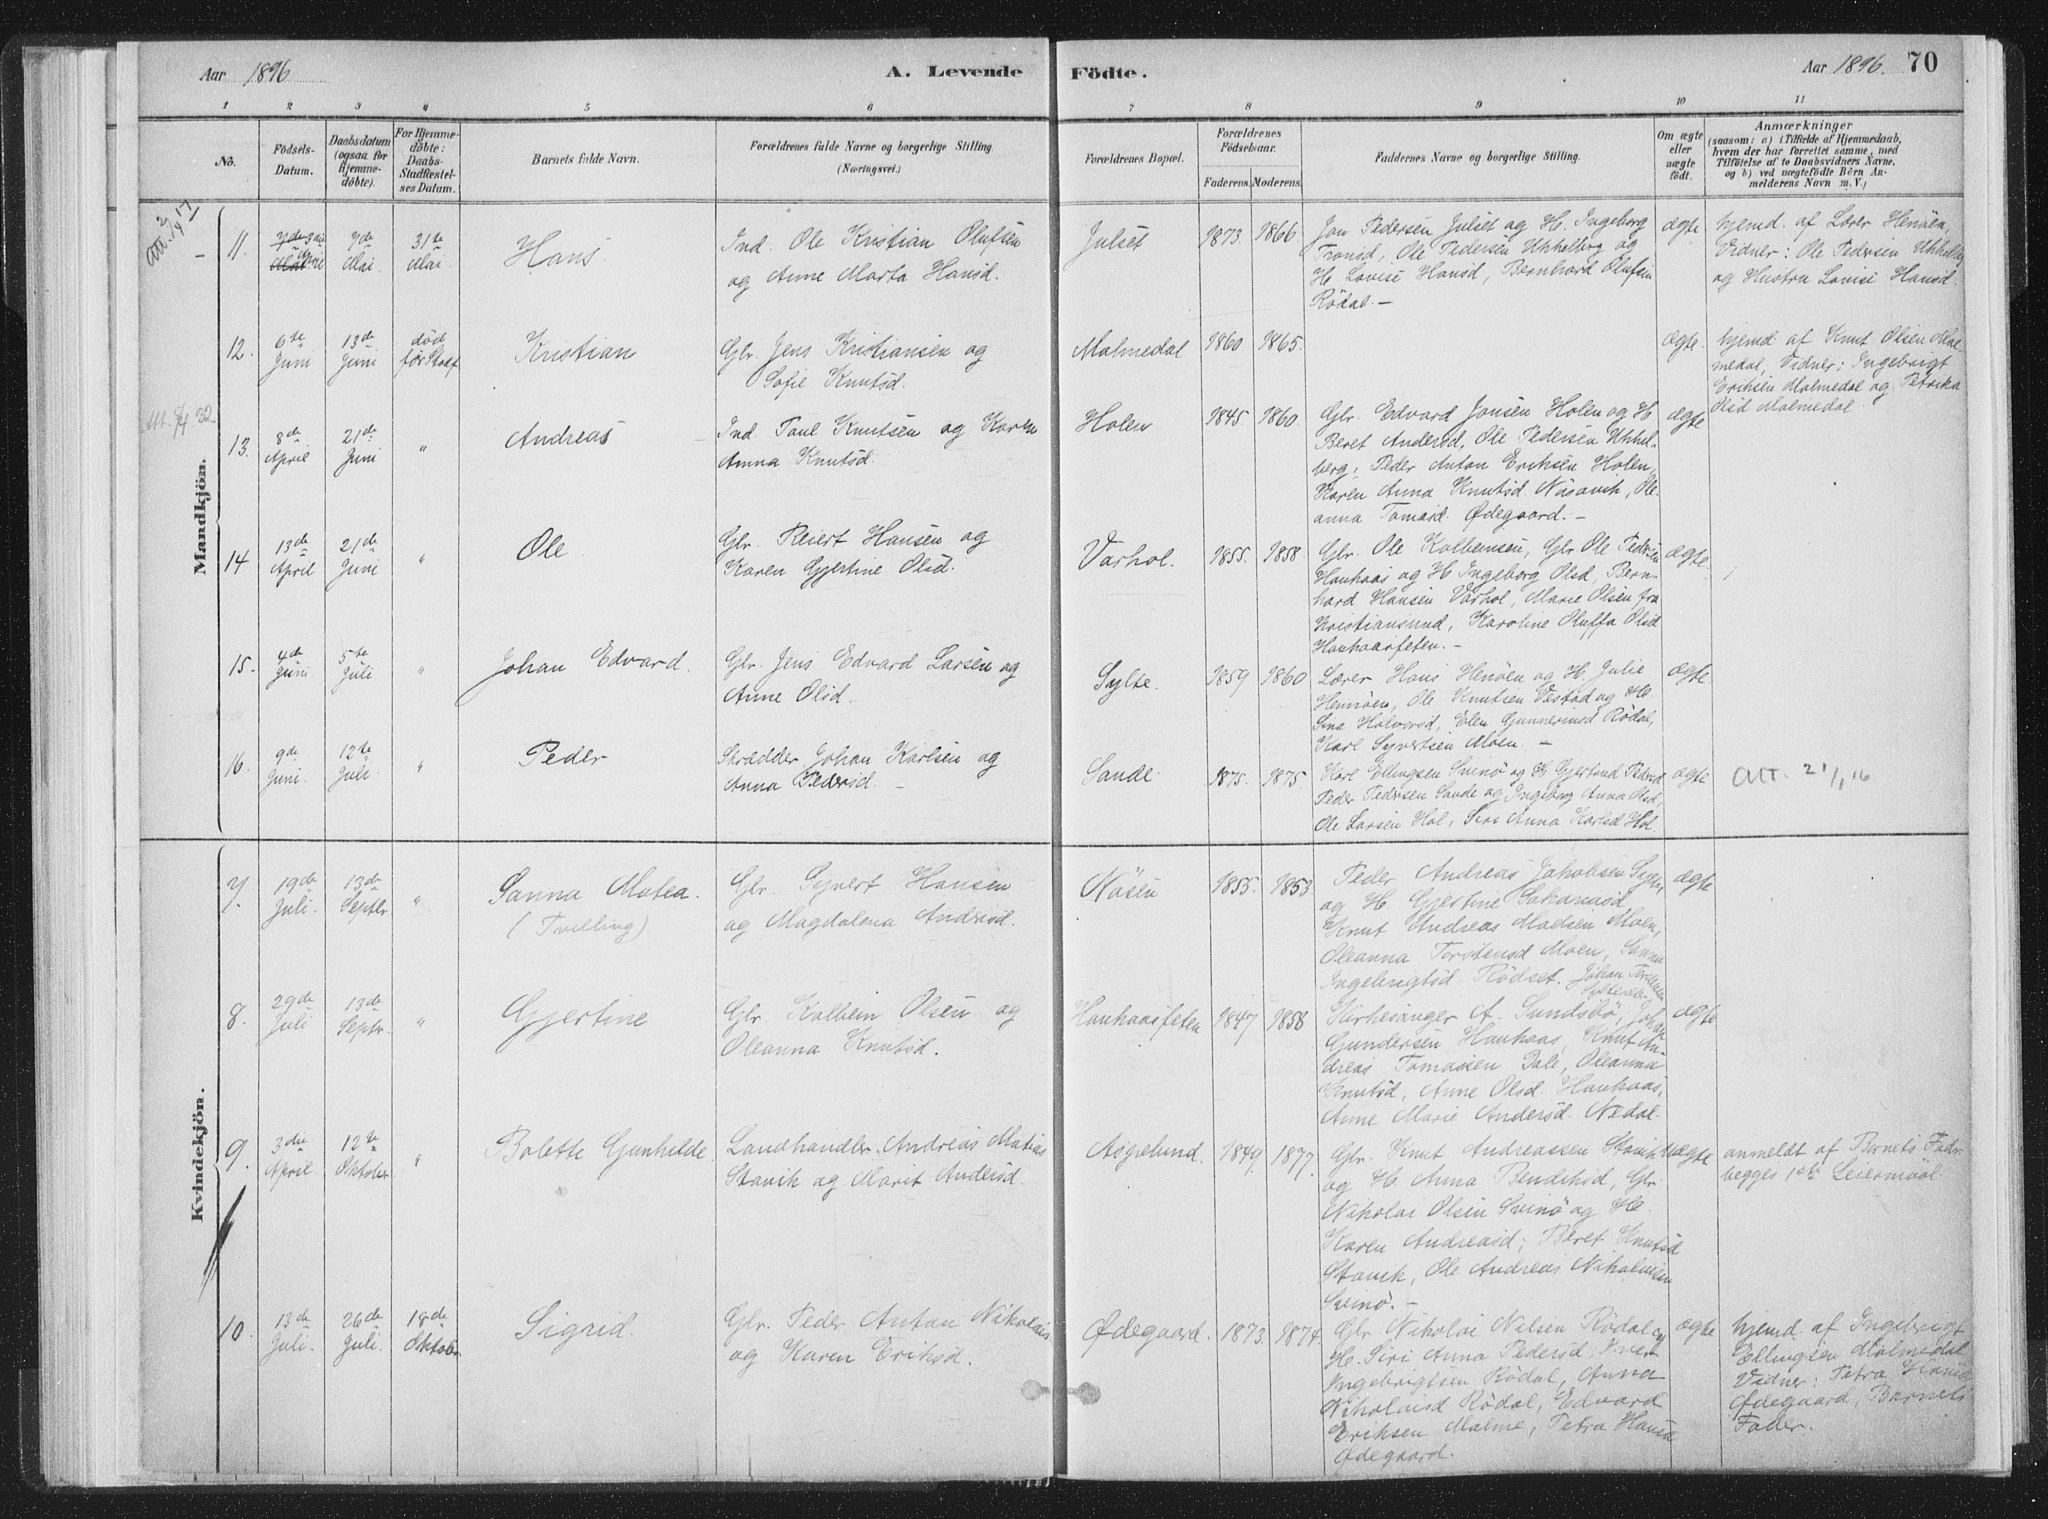 Aar 1896
A. Levende
Födte.
Aar 1896.
70
1 2 3 4 5 6 7 8 9 10 11
No.
Födsels-
Datum.
Daabsdatum
(ogsaa for
Hjemme-
döbte).
For Hjemme-
döbte:
Daabs-
Stadfæstel-
ses Datum.
Barnets fulde Navn.
Forældrenes fulde Navne og borgerlige Stilling
(Næringsvei.)
Forældrenes Bopæl.
Forældrenes
Födselsaar.
Faderens. Moderens.
Faddernes Navne og borgerlige Stilling.
Om ægte
eller
uægte
födt.
Anmærkninger
(saasom: a) i Tilfælde af Hjemmedaab,
hvem der har forrettet samme, med
Tilföielse af to Daabsvidners Navne,
og b) ved uægtefödte Börn An-
melderens Navn m. V.)
Mandkjön.
11.
April
7de
Mai
31te
Mai
Hans
Ind. Ole Kristian Olufsen
og Anne Marta Hansd.
Julset
1873. 1866
Jon Pedersen Julset og H. Ingeborg
Tronsd, Ole Pedersen Ukkelberg og
H. Lovise Hansd, Bernhard Olufsen
Rödal. —
ægte
hjemd. af Lærer Henöen,
Vidner: Ole Pedersen Ukkelbg
og Hustru Lovise Hansd.
12.
6te
Juni
13de
Juni
död
för Stadf
Kristian
Glr. Jens Kristiansen og
Sofie Knutsd.
Malmedal
1860 1865.
ægte.
hjemd af Knut Olsen Mal-
medal, Vidner: Ingebrigt
Eriksen Malmedal og Petrika
Olsd Malmedal.
13.
8de
April
21de
Juni
"
Andreas
Ind. Paul Knutsen og Karen
Anna Knutsd.
Holen
1845. 1860.
Glr. Edvard Jonsen Holen og H.
Beret Andersd, Ole Pedersen Ukkel-
berg, Peder Anton Eriksen Holen,
Karen Anna Knutsd Näsavik, Ole-
anna Tomasd. Ødegaard. —
ægte
14
13de
April
21de
Juni
"
Ole
Glr. Reiert Hansen og
Karen Gjertine Olsd.
Varhol.
1855. 1858
Glr. Ole Kolbensen, Glr Ole Pedersen
Haukaas og H Ingeborg Olsd, Bern-
hard Hansen Varhol, Marie Olsen fra
Kristiansund, Karoline Oluffa Olsd
Haukaasfeten. —
ægte.
15.
4de
Juni
5te
Juli
"
Johan Edvard.
Glr. Jens Edvard Larsen og
Anne Olsd.
Sylte.
1859 1860
Lærer Hans Henöen og H. Julie
Henöen, Ole Knutsen Vestad og H.
Sina Halvorsd, Elen Gunneriusd Rödal,
Karl Syvertsen Moen. —
ægte.
16.
9de
Juni.
12te
Juli.
"
Peder
Skrædder Johan Karlsen og
Anna Pedersd. —
Sande
1875. 1875.
Karl Ellingsen Svinö og H Gjertrud Pedersd
Peder Pedersen Sande og Ingeborg Anna Olsd,
Ole Larsen Hol, Siri Anna Karlsd Hol
ægte
Att. 21/1 16
Kvindekjön.
7.
19de
Juli.
13de
Septbr.
"
Sanna Matea.
(Tvilling)
Glr. Syvert Hansen
og Magdalena Andersd.
Näsen
1855. 1853.
Peder Andreas Jakobsen
og H Gjertine Sakariasd
Knut Andreas Madsen Moen,
Oleanna Torstensd Moen, Sanna
Ingebrigtsd Rödset. Johan
ægte
8.
29de
Juli
13de
Septr.
"
Gjertine
Glr. Kolbein Olsen og
Oleanna Knutsd.
Haukaasfeten
1847 1858
Kirkesanger A. Sundsbö, Johan
Gundersen Haukaas, Knut An-
dreas Tomassen Dale, Oleanna
Knutsd, Anne Olsd Haukaas,
Anne Marie Andersd. Nedal.
ægte
9.
3die
April
12te
Oktober
"
Bolette Gunhilde.
Landhandler Andreas Matias
Stavik og Marit Andersd.
Aspelund.
1849. 1877.
Glr. Knut Andreassen Stavik
og H. Anna Bendiksd, Glr.
Nikolai Olsen Svinö og H.
Karen Andreasd, Beret Knutsd
Stavik, Ole Andreas Nikolaisen
Svinö. —
uægte
anmeldt af Barnets Fader
begges 1ste Leiermaal.
10.
13de
Juli.
26de
Juli.
18de
Oktober
Sigrid.
Glr. Peder Anton Nikolais
og Karen Eriksd.
Ødegaard.
1873. 1874.
Glr. Nikolai Nilsen Rödal og
H. Siri Anna Pedersd, Iver
Ingebrigtsen Rödal, Anna
Nikolaisd Rödal, Edvard
Eriksen Malme, Petra Hansd
Ødegaard.
ægte
hjemd. af Ingebrigt
Ellingsen Malmedal
Vidner: Petra Hansd
Ødegaard, Barnets
Fader.